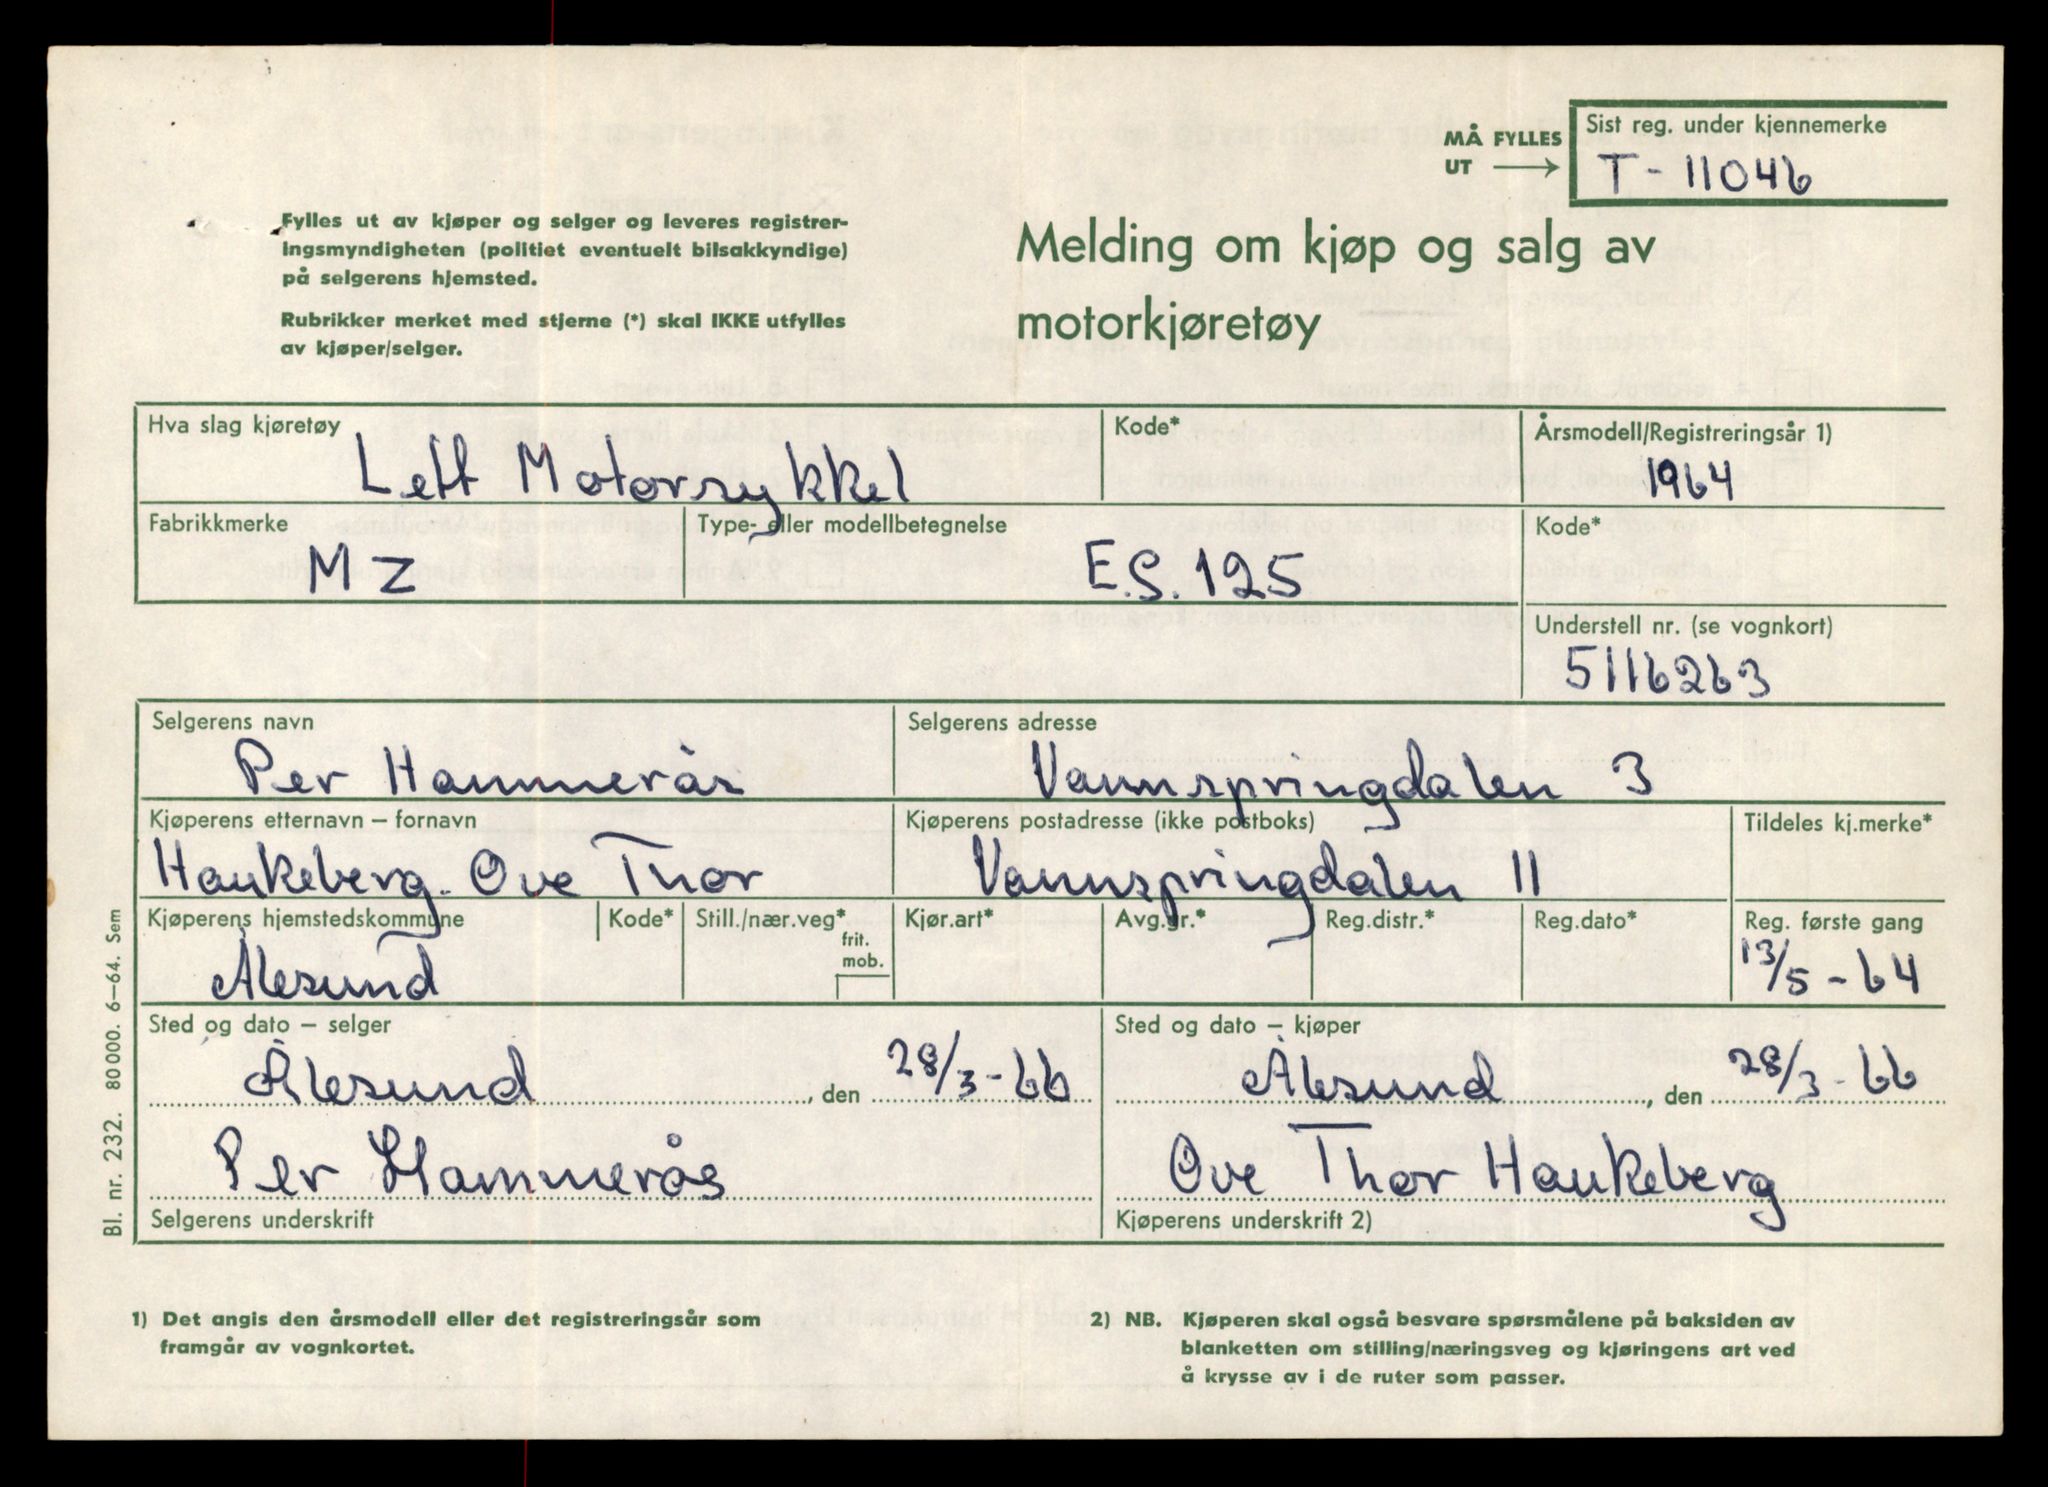 MÅ FYLLES
UT
Sist reg. under kjennemerke
T - 11046
Fylles ut av kjøper og selger og leveres registrer-
ingsmyndigheten (politiet eventuelt bilsakkyndige)
på selgerens hjemsted.
Rubrikker merket med stjerne (*) skal IKKE utfylles
av kjøper/selger.
Melding om kjøp og salg av
motorkjøretøy
Hva slag kjøretøy
Lett Motorsykkel
Kode*
Årsmodell/Registreringsår 1)
1964
Fabrikkmerke
MZ
Type- eller modellbetegnelse
E.S. 125
Kode*
Understell nr. (se vognkort)
5116263
Selgerens navn
Per Hammerås
Selgerens adresse
Vannspringdalen 3
Kjøperens etternavn – fornavn
Haukeberg. Ove Thor
Kjøperens postadresse (ikke postboks)
Vannspringdalen 11
Tildeles kj.merke*
Kjøperens hjemstedskommune
Ålesund
Kode*
Still./nær.veg*
frit.
mob.
Kjør.art*
Avg.gr.*
Reg.distr.*
Reg.dato*
Reg. første gang
13/5 - 64
Sted og dato – selger
Ålesund, den 28/3 - 66
Per Hammerås
Selgerens underskrift
Sted og dato – kjøper
Ålesund, den 28/3 - 66
Ove Thor Haukeberg
Kjøperens underskrift 2)
Bl. nr. 232. 80000. 6–64. Sem
1) Det angis den årsmodell eller det registreringsår som
framgår av vognkortet.
2) NB. Kjøperen skal også besvare spørsmålene på baksiden av
blanketten om stilling/næringsveg og kjøringens art ved
å krysse av i de ruter som passer.